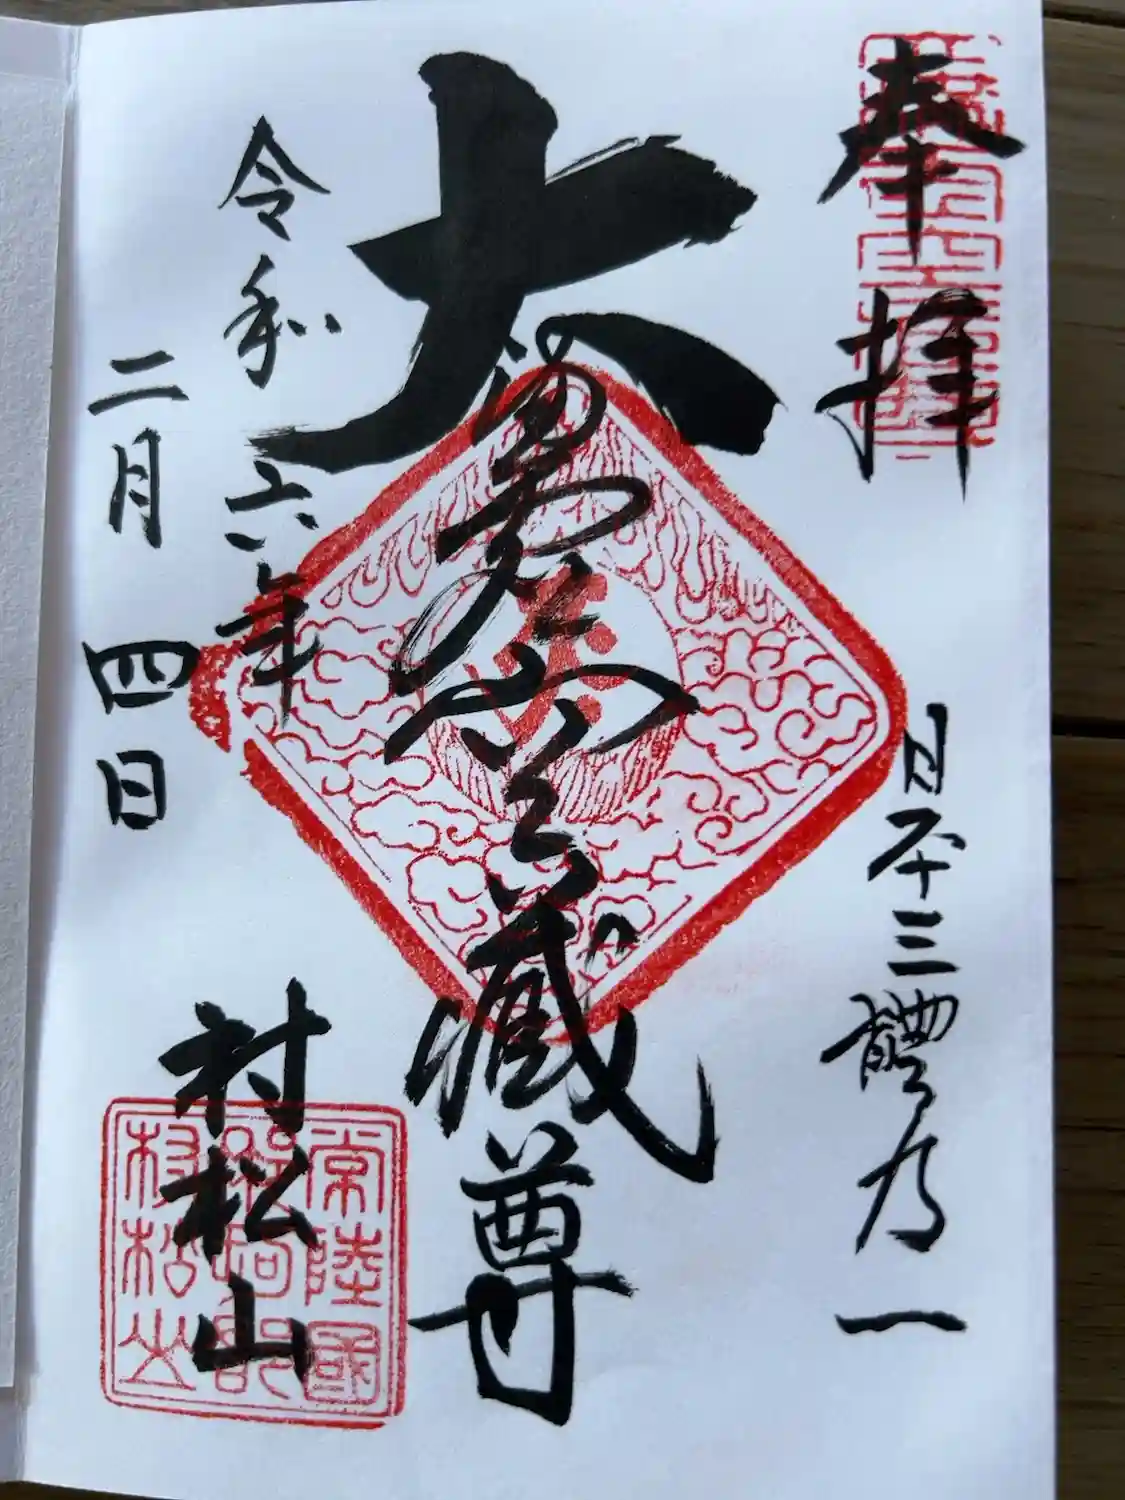 奉拝
日本三體乃一
大満虚空蔵尊
令和六年
二月四日
村松山
常陸國
那珂郡
村松山